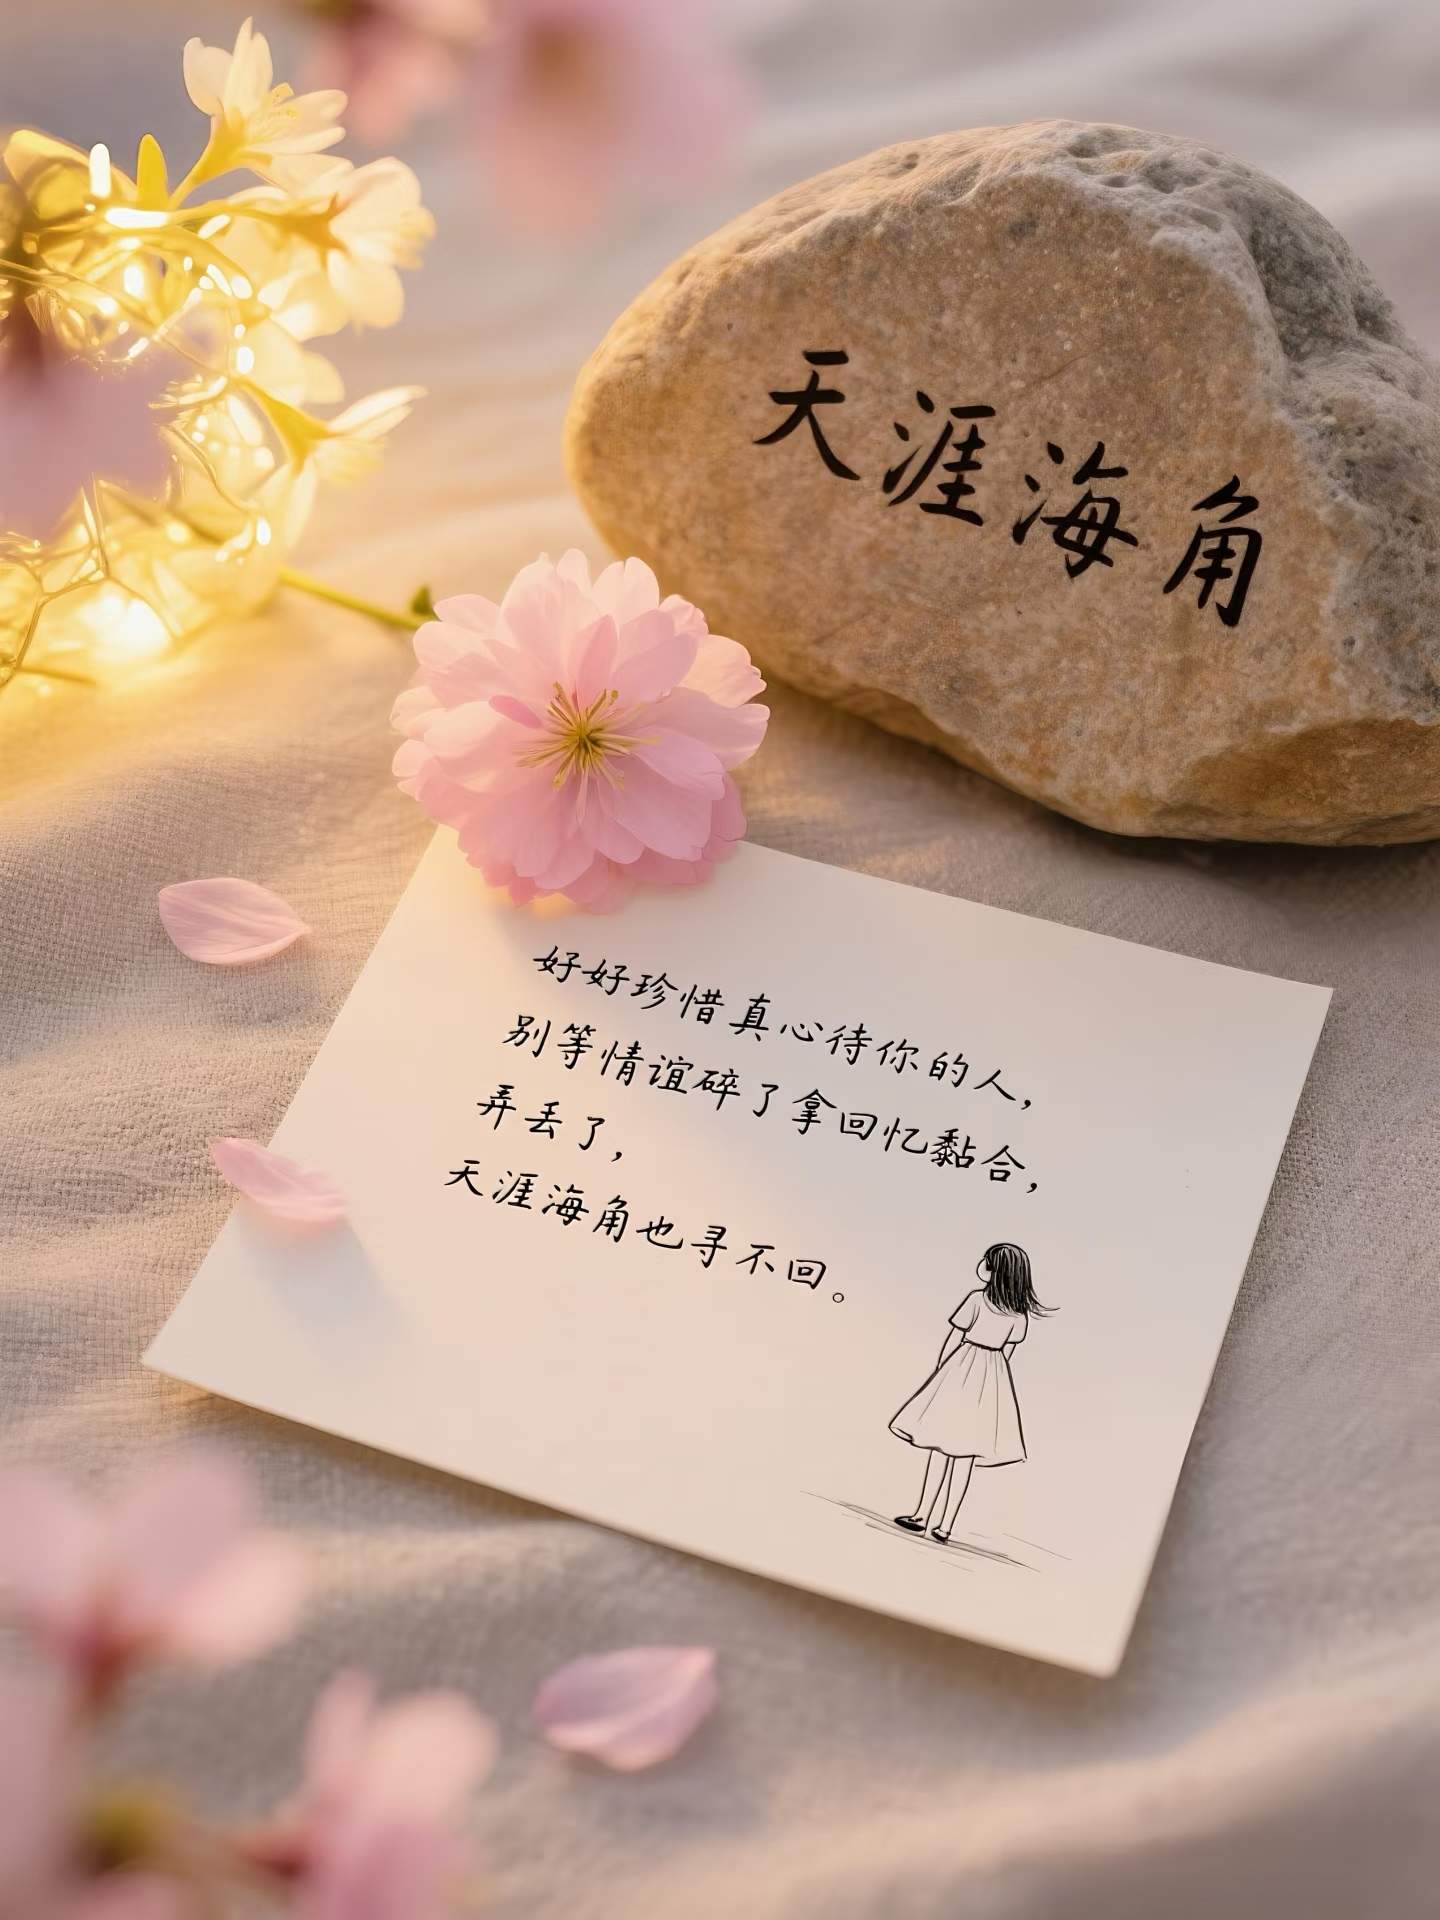 天涯海角
好好珍惜真心待你的人，
别等情谊碎了拿回忆黏合，
弄丢了，
天涯海角也寻不回。